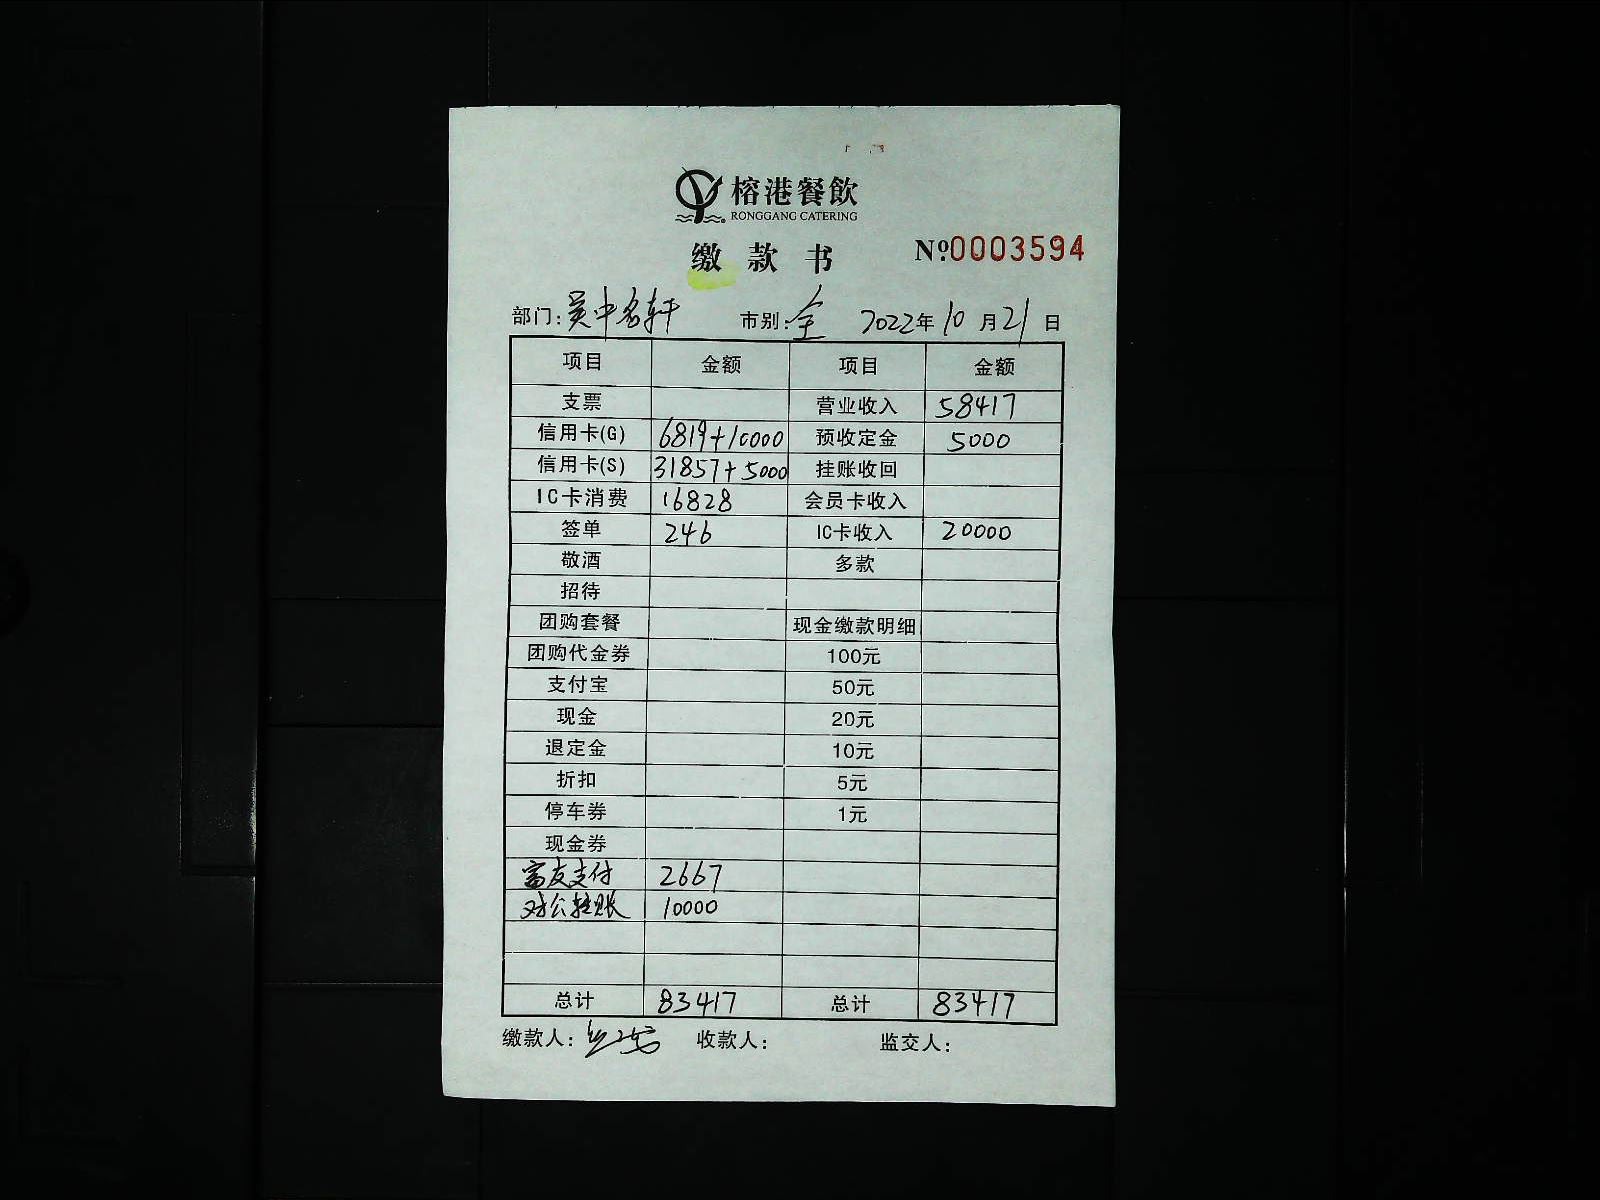 榕港餐飲
RONGGANG CATERING
缴款书 №:0003594
部门:吴中名轩 市别:全 2022年10月21日
项目 金额 项目 金额
支票 营业收入 58417
信用卡(G) 6819+10000 预收定金 5000
信用卡(S) 31857+5000 挂账收回
IC卡消费 16828 会员卡收入
签单 246 IC卡收入 20000
敬酒 多款
招待
团购套餐 现金缴款明细
团购代金券 100元
支付宝 50元
现金 20元
退定金 10元
折扣 5元
停车券 1元
现金券
富友支付 2667
对公转账 10000
总计 83417 总计 83417
缴款人: 收款人: 监交人: